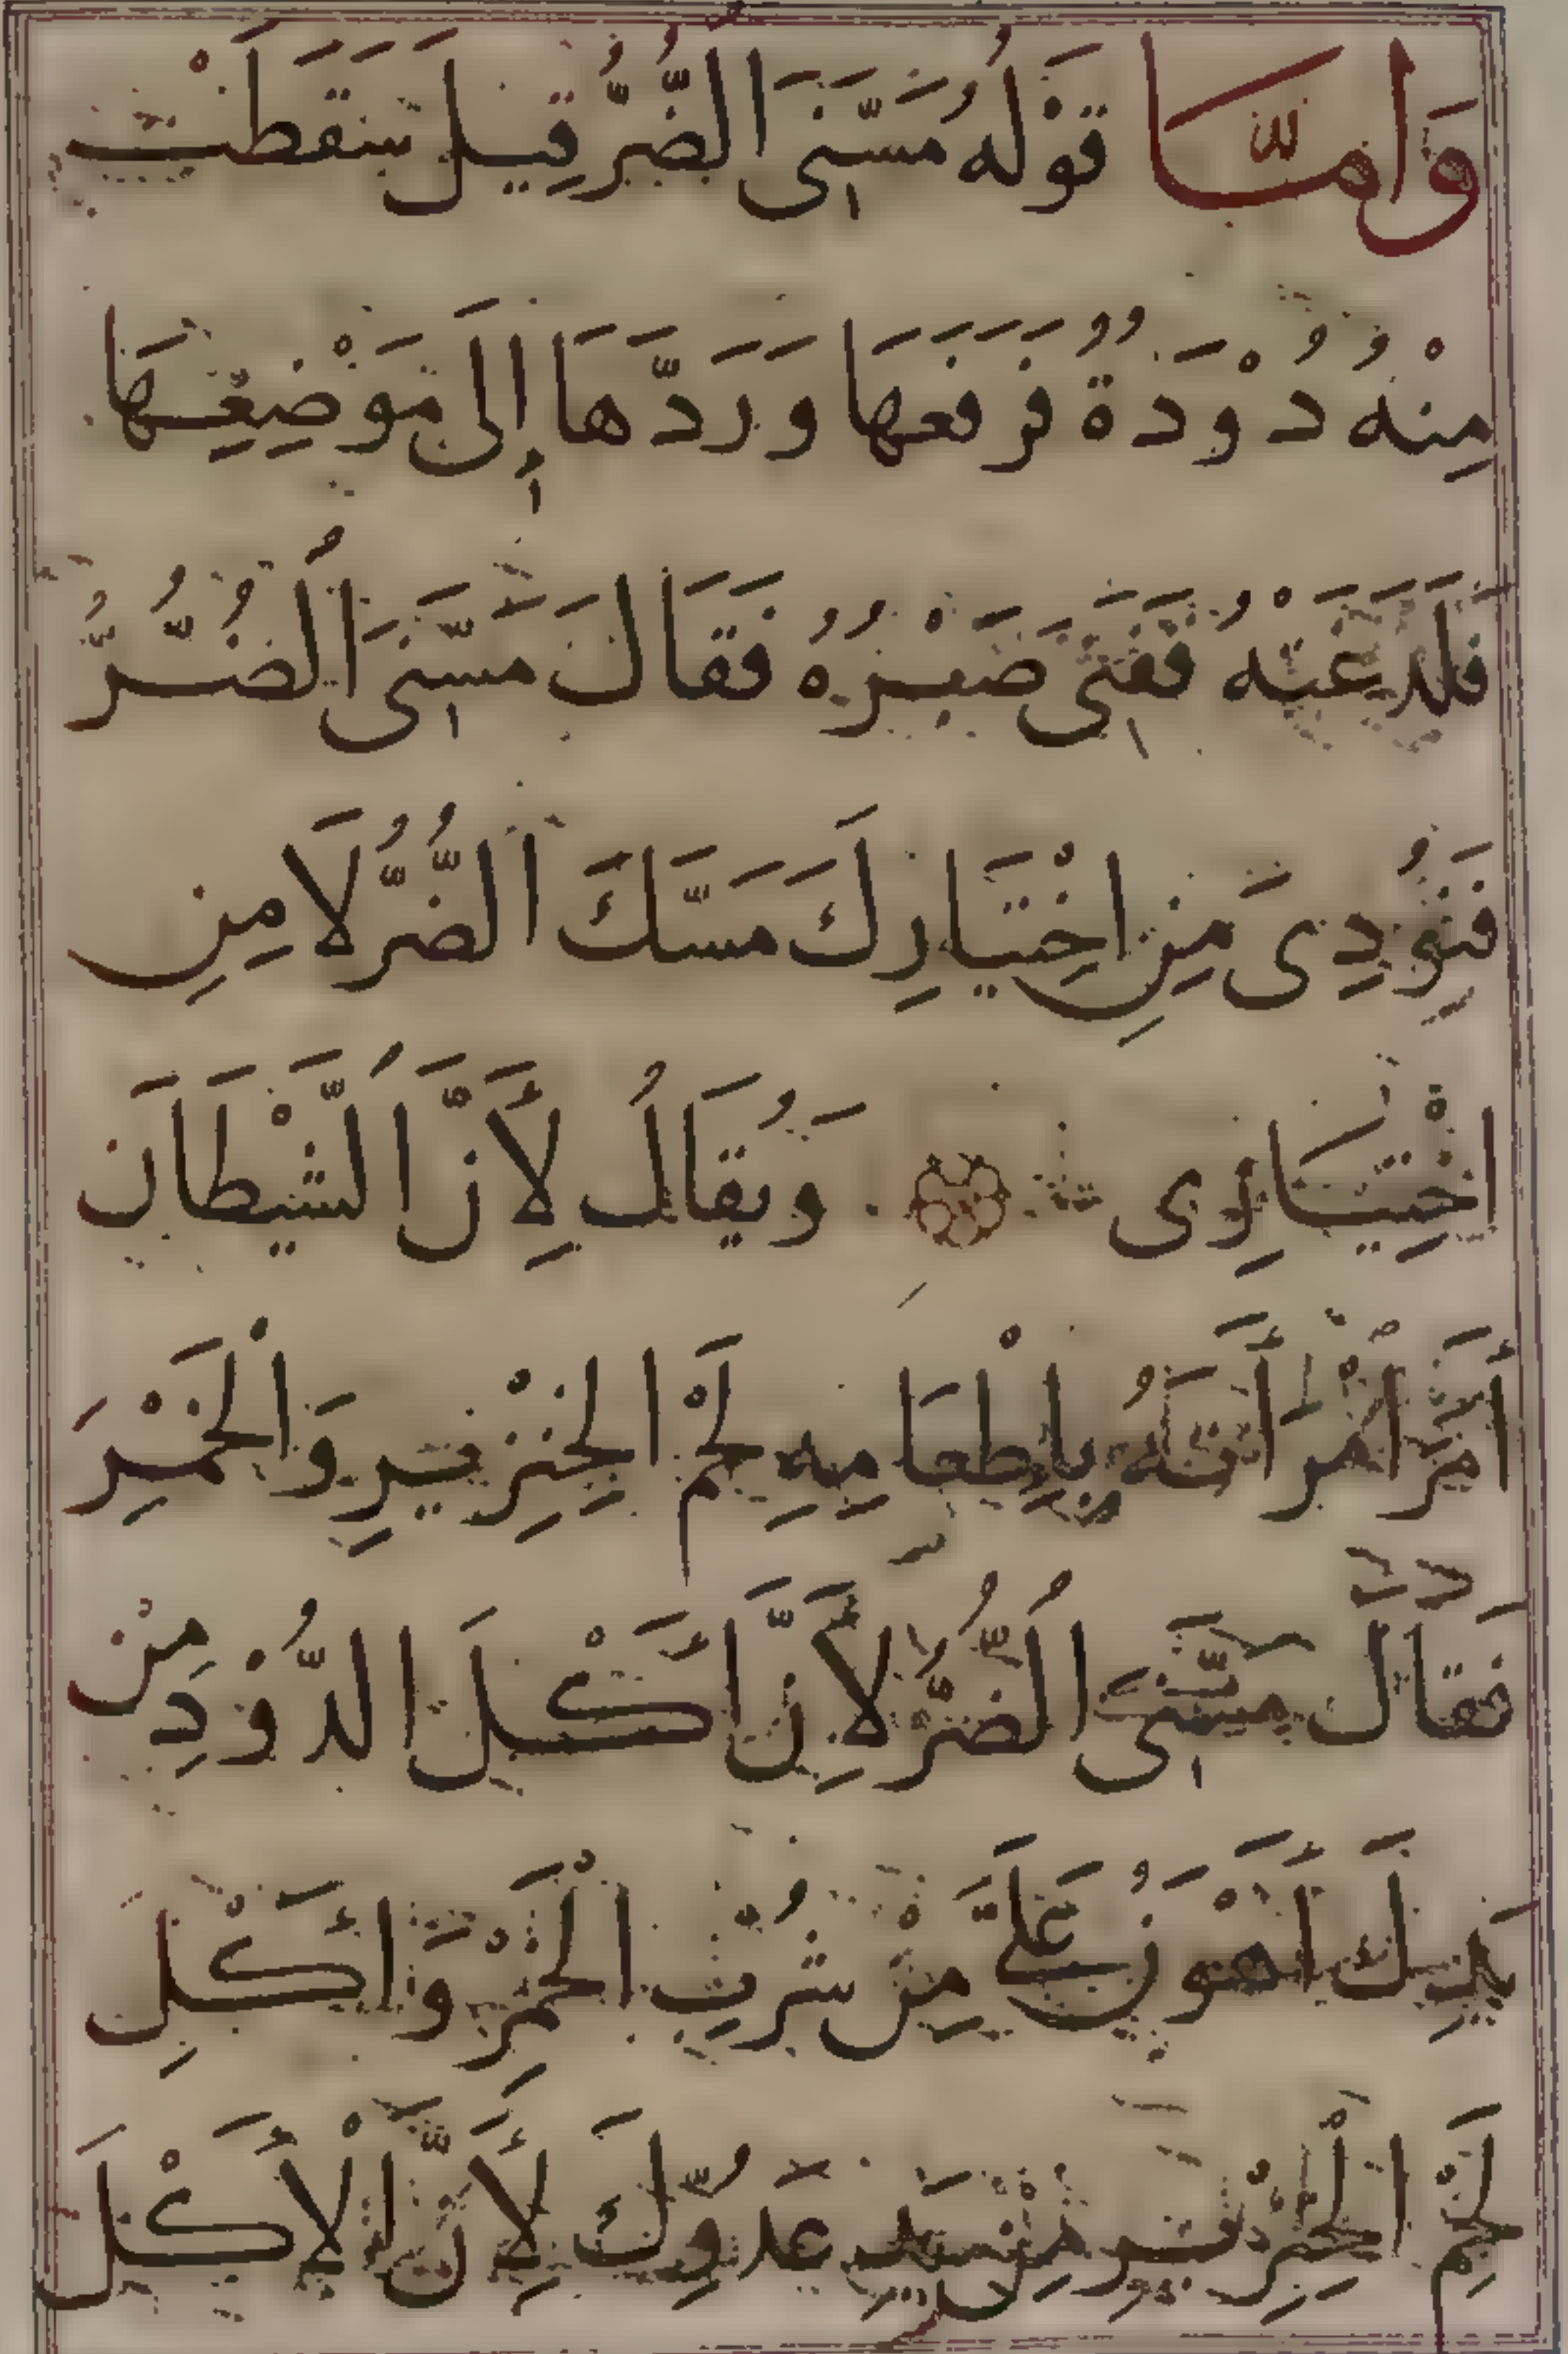 وَأَمَّا قَوْلُهُ مَسَّنِىَ الضُّرُّ قِيلَ سَقَطَتْ
مِنْهُ دُوْدَةٌ فَرَفَعَهَا وَرَدَّهَا إِلَى مَوْضِعِهَا
فَلَدَغَتْهُ فَفَنِىَ صَبْرُهُ فَقَالَ مَسَّنِىَ الضُّرُّ
فَنُودِىَ مِنِ اخْتِيَارِكَ مَسَّكَ الضُّرُّ لَا مِنِ
اخْتِيَارِى وَيُقَالُ لِأَنَّ الشَّيْطَانَ
أَمَرَ امْرَأَتَهُ بِإِطْعَامِهِ لَحْمَ الْخِنْزِيرِ وَالْخَمْرِ
فَقَالَ مَسَّنِىَ الضُّرُّ لِأَنَّ أَكْلَ الدُّوْدِ مِنْ
أَهْوَنُ عَلَىَّ مِنْ شُرْبِ الْخَمْرِ وَأَكْلِ
لَحْمِ الْخِنْزِيرِ مِنْ يَدِ عَدُوِّكَ لِأَنَّ الْأَكْلَ